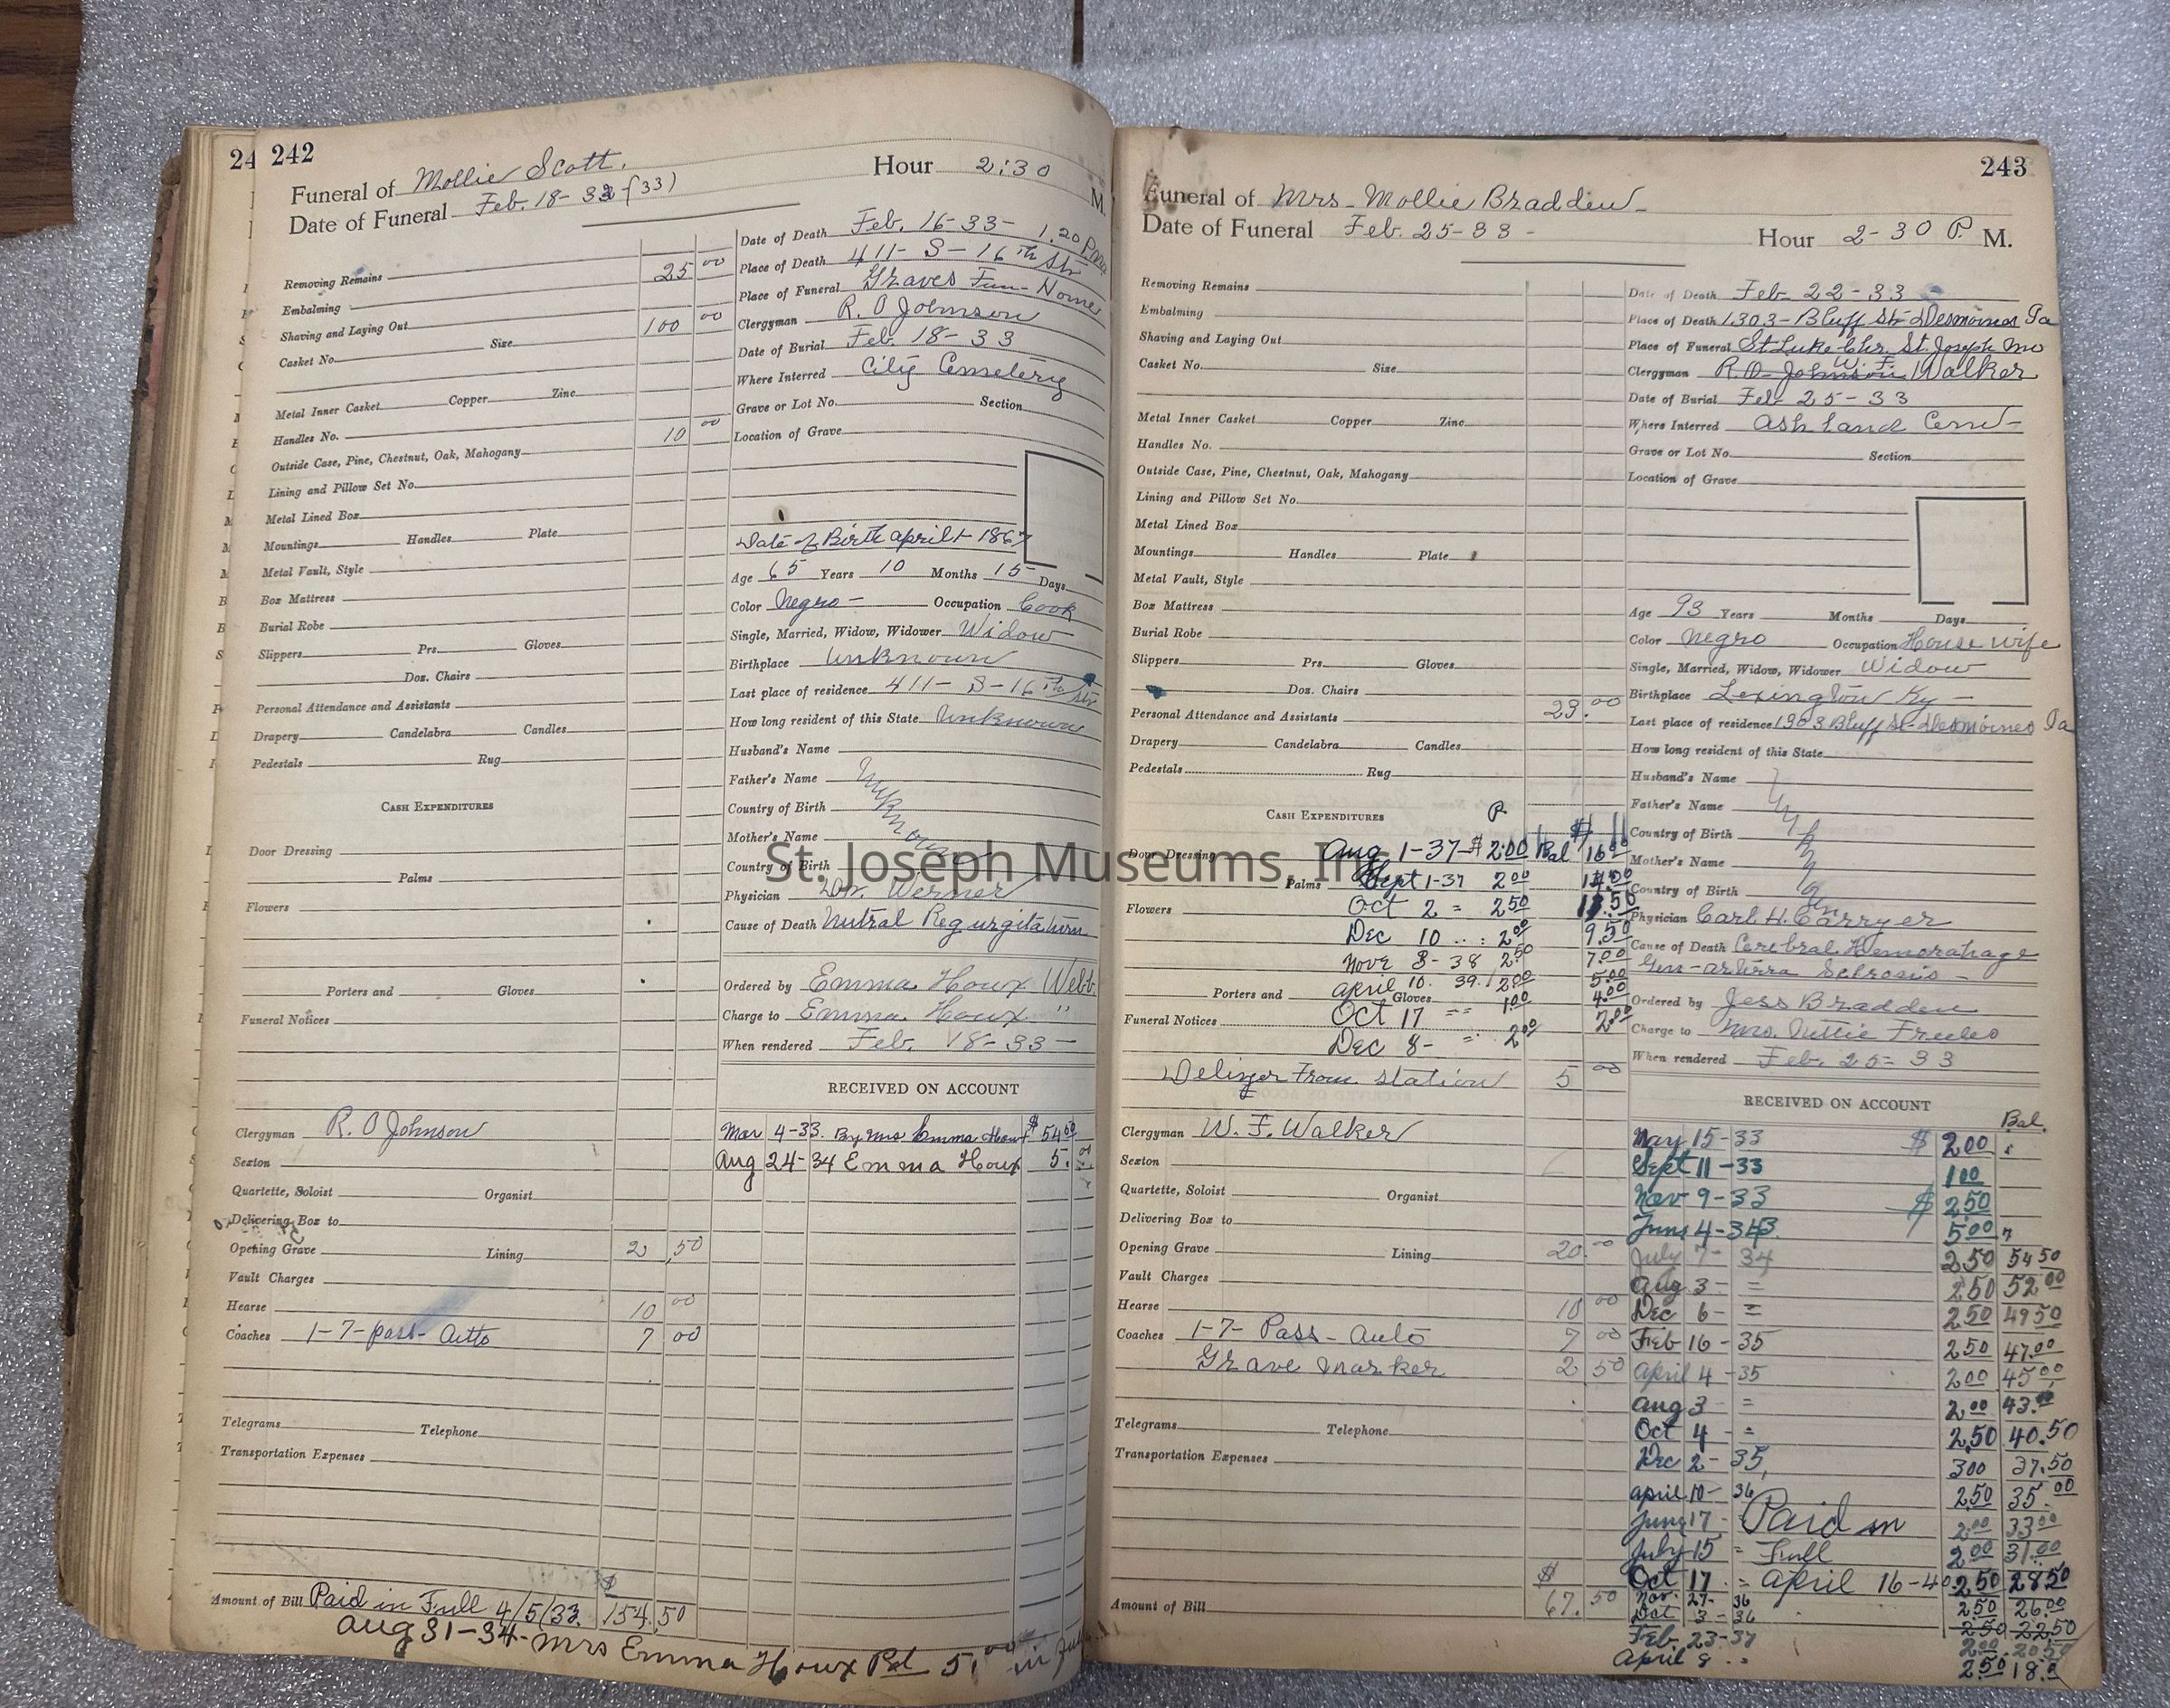 24 242
Funeral of Mollie Scott. Hour 2:30 M.
Date of Funeral Feb. 18-33-(33)
Removing Remains 25 00
Embalming
Shaving and Laying Out 100 00
Casket No. Size
Metal Inner Casket Copper Zinc
Handles No. 10 00
Outside Case, Pine, Chestnut, Oak, Mahogany
Lining and Pillow Set No.
Metal Lined Box
Mountings Handles Plate
Metal Vault, Style
Box Mattress
Burial Robe
Slippers Prs. Gloves
Doz. Chairs
Personal Attendance and Assistants
Drapery Candelabra Candles
Pedestals Rug
CASH EXPENDITURES
Door Dressing
Palms
Flowers
Porters and Gloves
Funeral Notices
Clergyman R. O Johnson
Sexton
Quartette, Soloist Organist
Delivering Box to
Opening Grave Lining 2.50
Vault Charges
Hearse 10 00
Coaches 1-7-pass- Autto 7 00
Telegrams Telephone
Transportation Expenses
Amount of Bill Paid in Full 4/5/33. $ 154.50
Aug 31-34- Mrs Emma Houx Pd 5.00 in full
Date of Death Feb. 16-33- 1.20 P.M.
Place of Death 411- S- 16th Str
Place of Funeral Graves Fun- Home
Clergyman R. O Johnson
Date of Burial Feb. 18-33
Where Interred City Cemetery
Grave or Lot No. Section
Location of Grave
Date of Birth april 1- 1867
Age 65 Years 10 Months 15 Days
Color Negro- Occupation Cook
Single, Married, Widow, Widower Widow
Birthplace Unknown
Last place of residence 411- S-16th Str
How long resident of this State Unknown
Husband's Name
Father's Name Unknown
Country of Birth
Mother's Name
Country of Birth
Physician Dr. Werner
Cause of Death Mutral Regurgitation
Ordered by Emma Houx Webb.
Charge to Emma Houx "
When rendered Feb. 18-33-
RECEIVED ON ACCOUNT
Mar 4-33. By Mrs Emma Houx $54.00
Aug 24-34 Emma Houx 5.00
243
Funeral of Mrs- Mollie Bradden-
Date of Funeral Feb. 25-33- Hour 2-30 P. M.
Removing Remains
Embalming
Shaving and Laying Out
Casket No. Size
Metal Inner Casket Copper Zinc
Handles No.
Outside Case, Pine, Chestnut, Oak, Mahogany
Lining and Pillow Set No.
Metal Lined Box
Mountings Handles Plate
Metal Vault, Style
Box Mattress
Burial Robe
Slippers Prs. Gloves
Doz. Chairs
Personal Attendance and Assistants 23.00
Drapery Candelabra Candles
Pedestals Rug
CASH EXPENDITURES P. $
Door Dressing Aug 1-37-$2.00 Bal 16.00
Palms Sept 1-37 2.00 14.00
Flowers Oct 2 = 2.50 11.50
Dec 10 .. : 2.00 9.50
Nov 3-38 2.50 7.00
Porters and Gloves April 10. 39. 2.00 5.00
Funeral Notices Oct 17 == 1.00 4.00
Dec 8- = 2.00 2.00
Deliver From station 5 00
Clergyman W. F. Walker
Sexton
Quartette, Soloist Organist
Delivering Box to
Opening Grave Lining 20.00
Vault Charges
Hearse 10 00
Coaches 1-7- Pass- Auto 7 00
Grave Marker 2 50
Telegrams Telephone
Transportation Expenses
Amount of Bill $ 67.50
Date of Death Feb. 22-33
Place of Death 1303- Bluff Str Desmoines Ia
Place of Funeral St Luke Chr. St. Joseph Mo
Clergyman R. O- Johnson W. F. Walker
Date of Burial Feb 25-33
Where Interred Ashland Cem-
Grave or Lot No. Section
Location of Grave
Age 93 Years Months Days
Color Negro Occupation House wife
Single, Married, Widow, Widower Widow
Birthplace Lexington Ky-
Last place of residence 1303 Bluff St- Desmoines Ia
How long resident of this State
Husband's Name
Father's Name
Country of Birth
Mother's Name
Country of Birth
Physician Carl H. Carryer
Cause of Death Cerebral Hemorahage
Gen- arterra Sclrosis-
Ordered by Jess Bradden
Charge to Mrs.
When rendered Feb. 25-33
RECEIVED ON ACCOUNT Bal.
May 15-33 $ 2.00
Sept 11-33 1.00
Nov 9-33 $ 2.50
June 4-34 5.00
July 7- 34 2.50 54 50
Aug 3- = 2.50 52 00
Dec 6- = 2.50 49 50
Feb 16-35 2.50 47.00
April 4-35 2.00 45.00
Aug 3- = 2.00 43.00
Oct 4- = 2.50 40.50
Dec 2-35, 3.00 37.50
April 10-36 2.50 35.00
June 17- Paid in 2.00 33.00
July 15 = Full 2.00 31.00
Oct 17. = April 16-40 2.50 28.50
Nov. 27-36 2.50 26.00
Oct 3-36 2.50 22.50
Feb. 23-37 2.00 20.50
April 8 .. 2.50 18.0
St. Joseph Museums, Inc.